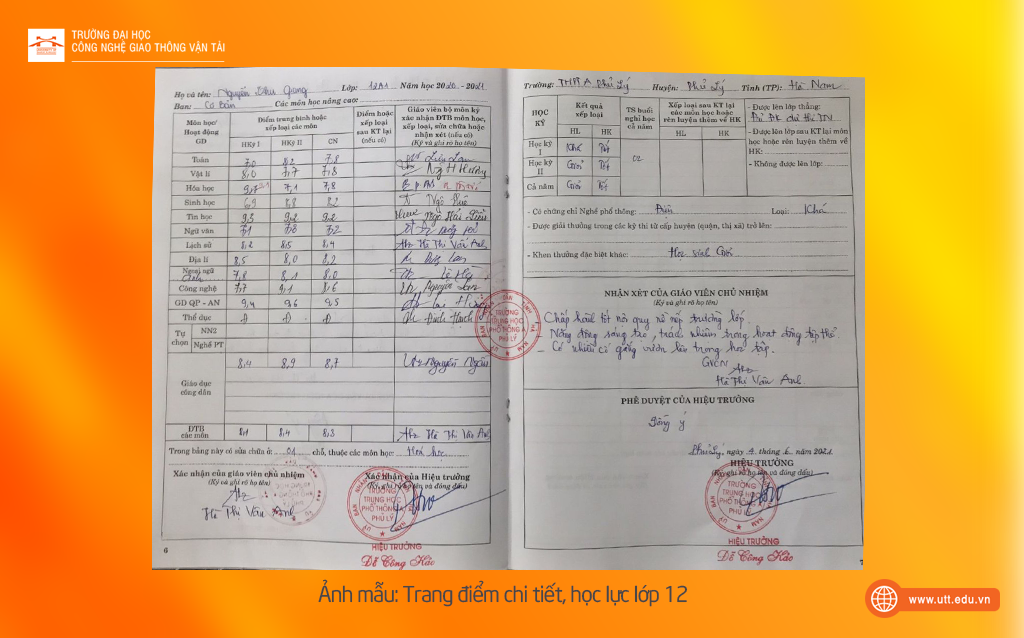 TRƯỜNG ĐẠI HỌC
CÔNG NGHỆ GIAO THÔNG VẬN TẢI
Họ và tên: Nguyễn Thu Giang Lớp: 12A1 Năm học 2020 - 2021
Ban: Cơ bản Các môn học nâng cao:
Môn học/ Hoạt động GD
Điểm trung bình hoặc xếp loại các môn
HKỳ I HKỳ II CN
Điểm hoặc xếp loại sau KT lại (nếu có)
Giáo viên bộ môn ký xác nhận ĐTB môn học, xếp loại, sửa chữa hoặc nhận xét (nếu có)
(Ký và ghi rõ họ tên)
Toán 7,0 8,2 7,8
Vật lí 8,0 7,7 7,8
Hóa học 7,1 7,8
Sinh học 6,9 8,8 8,2
Tin học 9,3 9,2 9,2
Ngữ văn 7,1 7,3 7,2
Lịch sử 8,2 8,5 8,4 Hà Thị Vân Anh
Địa lí 8,5 8,0 8,2
Ngoại ngữ Anh 7,8 8,1 8,0
Công nghệ 7,7 9,1 8,6 Nguyễn Lan
GD QP - AN 9,4 9,6 9,5
Thể dục Đ Đ Đ
Tự chọn NN2
Nghề PT
Giáo dục công dân 8,4 8,9 8,7
ĐTB các môn 8,1 8,4 8,3 Hà Thị Vân Anh
Trong bảng này có sửa chữa ở: 01 chỗ, thuộc các môn học: Hoá học
Xác nhận của giáo viên chủ nhiệm
(Ký và ghi rõ họ tên)
Hà Thị Vân Anh
Xác nhận của Hiệu trưởng
(Ký, ghi rõ họ tên và đóng dấu)
TRƯỜNG
TRUNG HỌC
PHỔ THÔNG A
PHỦ LÝ
HIỆU TRƯỞNG
Đỗ Công Kảo
6
Trường: THPT A Phủ Lý Huyện: Phủ Lý Tỉnh (TP): Hà Nam
HỌC KỲ
Kết quả xếp loại
HL HK
TS buổi nghỉ học cả năm
Xếp loại sau KT lại các môn học hoặc rèn luyện thêm về HK
HL HK
Học kỳ I Khá Tốt
Học kỳ II Giỏi Tốt
Cả năm Giỏi Tốt
02
- Được lên lớp thẳng:
Đủ ĐK dự thi TN
- Được lên lớp sau KT lại môn học hoặc rèn luyện thêm về HK:
- Không được lên lớp:
- Có chứng chỉ Nghề phổ thông: Điện Loại: Khá
- Được giải thưởng trong các kỳ thi từ cấp huyện (quận, thị xã) trở lên:
- Khen thưởng đặc biệt khác: Học sinh Giỏi
NHẬN XÉT CỦA GIÁO VIÊN CHỦ NHIỆM
(Ký và ghi rõ họ tên)
Chấp hành tốt nội quy nề nếp trường lớp.
- Năng động sáng tạo, trách nhiệm trong hoạt động tập thể
- Có nhiều cố gắng vươn lên trong học tập.
GVCN
Hà Thị Vân Anh
PHÊ DUYỆT CỦA HIỆU TRƯỞNG
Đồng ý
Phủ Lý, ngày 4 tháng 6 năm 2021
HIỆU TRƯỞNG
(Ký, ghi rõ họ tên và đóng dấu)
TRƯỜNG
TRUNG HỌC
PHỔ THÔNG A
PHỦ LÝ
HIỆU TRƯỞNG
Đỗ Công Kảo
7
Ảnh mẫu: Trang điểm chi tiết, học lực lớp 12
www.utt.edu.vn